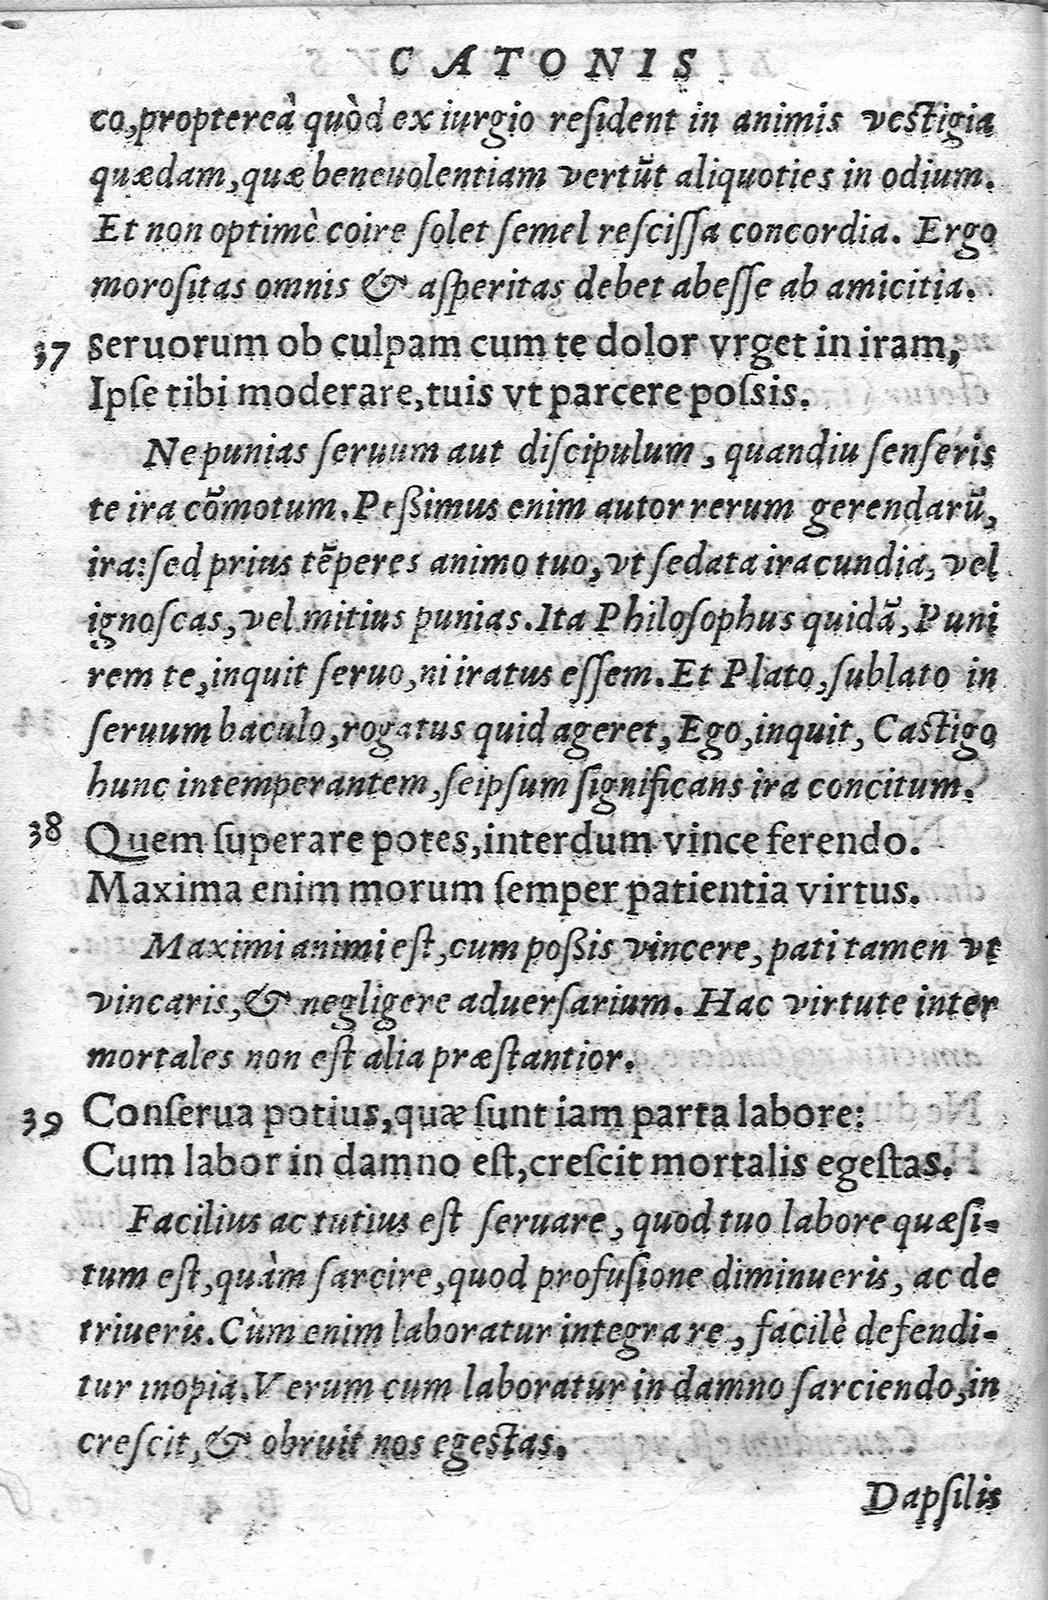 CATONIS
co,propterea̓ quòd ex iurgio resident in animis vestigia
quædam,quæ beneuolentiam vertūt aliquoties in odium.
Et non optimè coire ſolet ſemel reſciſſa concordia. Ergo
moroſitas omnis & aſperitas debet abeſſe ab amicitia.
37 Seruorum ob culpam cum te dolor vrget in iram,
Ipſe tibi moderare,tuis vt parcere poſsis.
Ne punias ſeruum aut diſcipulum, quandiu ſenſeris
te ira cōmotum.Peßimus enim autor rerum gerendarū,
ira:ſed prius tēperes animo tuo, vt ſedata iracundia, vel
ignoſcas, vel mitius punias.Ita Philoſophus quidā, Puni
rem te,inquit ſeruo,ni iratus eſſem.Et Plato,ſublato in
ſeruum baculo,rogatus quid ageret, Ego,inquit, Castigo
hunc intemperantem,ſeipſum ſignificans ira concitum.
38 Quem ſuperare potes,interdum vince ferendo.
Maxima enim morum ſemper patientia virtus.
Maximi animi eſt,cum poßis vincere, pati tamen vt
vincaris,& negligere aduerſarium. Hac virtute inter
mortales non eſt alia præſtantior.
39 Conſerua potius,quæ ſunt iam parta labore:
Cum labor in damno eſt,creſcit mortalis egeſtas.
Facilius ac tutius eſt ſeruare, quod tuo labore quæſi-
tum eſt,quàm ſarcire,quod profuſione diminueris, ac de
triueris.Cùm enim laboratur integra re, facilè defendi-
tur inopia.Verum cum laboratur in damno ſarciendo,in
creſcit,& obruit nos egestas.
Dapſilis